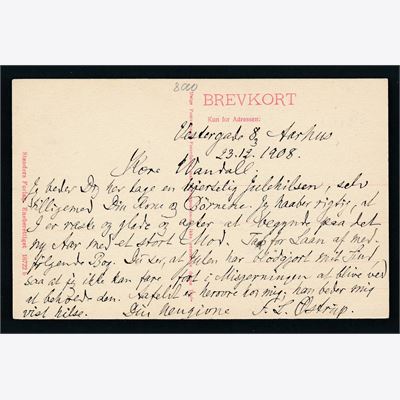 8000
BREVKORT
Kun for Adressen:
Vestergade 8/3 Aarhus
23.12.1908.
Kære Wandall.
Jeg beder Dig her tage en hjertelig Julehilsen, selv
tilligemed Din Kone og Børnene. Jeg haaber rigtig, at
I er raske og glade og agter at begynde paa det
ny Aar med et stort Mod. Tak for Laan af med-
følgende Bog. Du ser, at Julen har blødgjort mit Sind
saa at jeg ikke kan fare fort i Misgerningen at blive ved
at beholde den. og min Kone beder mig
vist hilse. Din hengivne F. L. Østrup.
Stenders Forlag. Eneberettiget 16722